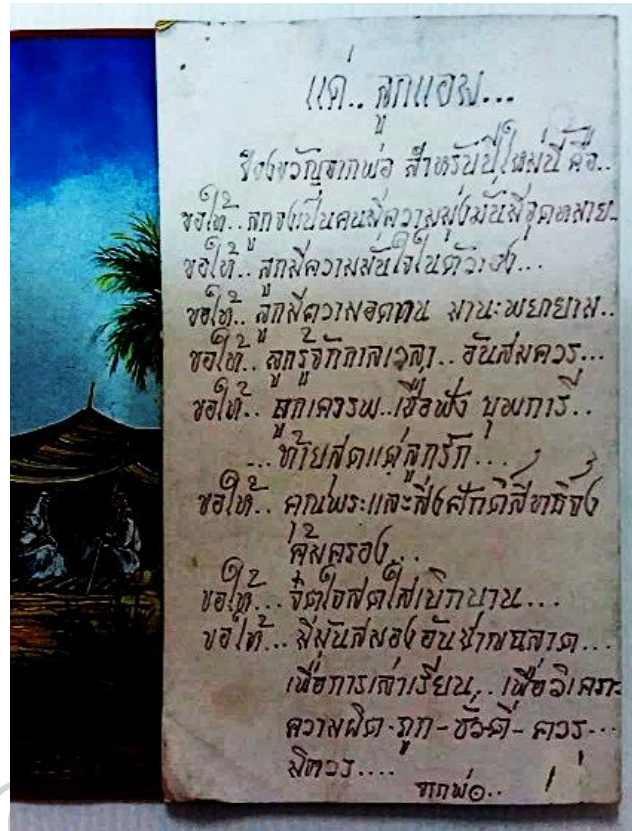 แด่.. ลูกแอม...
ของขวัญจากพ่อ สำหรับปีใหม่นี้ คือ..
ขอให้.. ลูกจงเป็นคนมีความมุ่งมั่นมีจุดหมาย..
ขอให้.. ลูกมีความมั่นใจในตัวเอง...
ขอให้.. ลูกมีความอดทน มานะพยายาม..
ขอให้.. ลูกรู้จักกาลเวลา.. อันสมควร...
ขอให้.. ลูกเคารพ..เชื่อฟัง บุพการี..
...ท้ายสุดแด่ลูกรัก...
ขอให้.. คุณพระและสิ่งศักดิ์สิทธิ์จง
คุ้มครอง...
ขอให้... จิตใจสดใสเบิกบาน...
ขอให้... มีมันสมองอันชาญฉลาด...
เพื่อการเล่าเรียน.. เพื่อวิเคราะ
ความผิด-ถูก-ชั่วดี-ควร...
มิควร....
จากพ่อ..